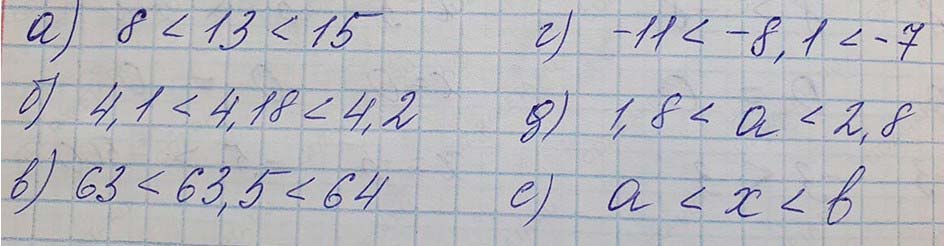 а) 8 < 13 < 15
б) 4,1 < 4,18 < 4,2
в) 63 < 63,5 < 64
г) -11 < -8,1 < -7
д) 1,8 < а < 2,8
е) а < x < b